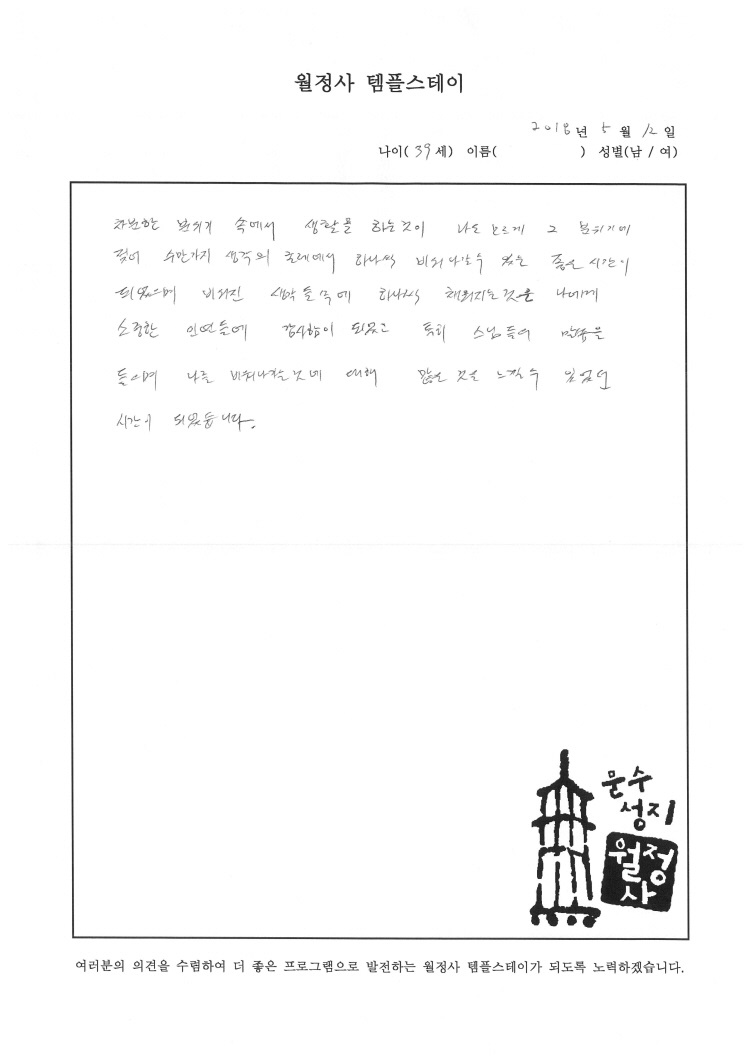 월정사 템플스테이
2018년 5월 12일
나이( 39 세) 이름( ) 성별(남 / 여)
차분한 분위기 속에서 생활을 하는것이 나도 모르게 그 분위기에
젖어 수만가지 생각의 굴레에서 하나씩 비워나갈수 있는 좋은 시간이
되었으며 비워진 생각들 속에 하나씩 채워지는것을 나에게
소중한 인연들에 감사함이 되었고 특히 스님들의 말씀을
들으며 나를 비워나가는것에 대해 많은 것을 느낄수 있었던
시간이 되었습니다.
문수
성지
월정
사
여러분의 의견을 수렴하여 더 좋은 프로그램으로 발전하는 월정사 템플스테이가 되도록 노력하겠습니다.